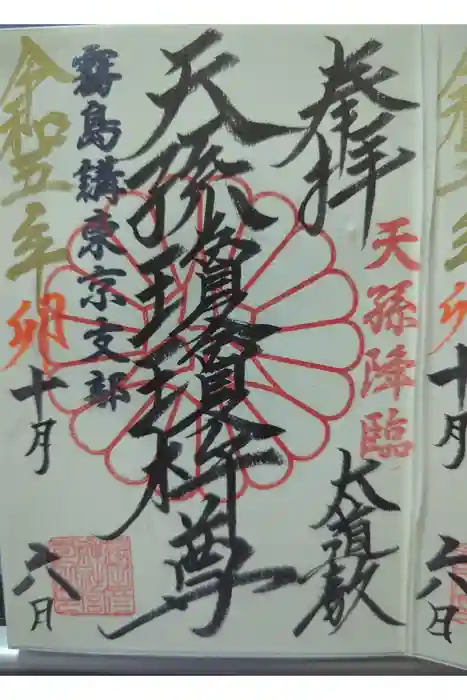 奉拝
天孫降臨
太道教
天孫瓊瓊杵尊
霧島講東京支部
令和五年
卯
十月
六日
十月
六日